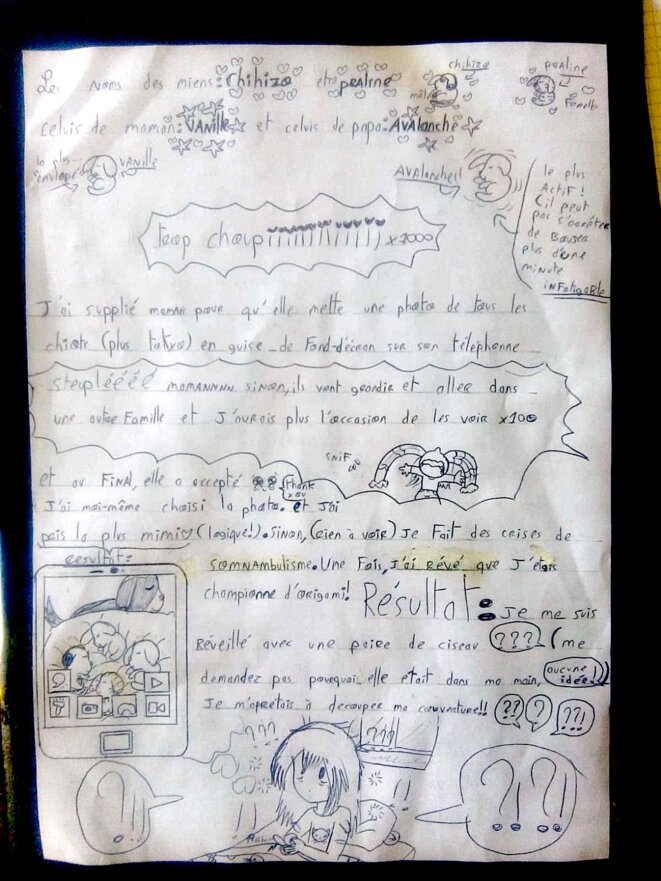 Les noms des miens: Chihiza et praline
chihiza
mâle
praline
Femelle
celuis de maman: VAnille et celuis de papa: AVAlanche
la plus...
"enviope"
VANille
AVAlanche!
le plus
ActiF!
(il peut
pas s'arrêter
de Bouger
plus d'une
minute
iNFatigable
trop choupiiiiiiiiiiii x1000
J'ai supplié maman pour qu'elle mette une photo de tous les
chiots (plus takxa) en guise de Fond-d'écran sur son téléphone
steuplééééé mamannnn sinon, ils vont grandir et aller dans
une autre Famille et J'aurois plus l'occasion de les voir x100
sniF
et au FiNAL, elle a accepté
thank
you
J'ai moi-même choisi la photo. et J'ai
pris la plus mimi (logique!). Sinon, (rien à voir) Je Fait des crises de
résultat:
somnambulisme. Une Fois, J'ai rêvé que J'étais
championne d'origami! Résultat: Je me suis
Réveillé avec une paire de ciseau ??? (me
demandez pas pourquoi elle était dans ma main, aucune
idée!))
Je m'apretais à decouper ma couverture!! ?? ? ??!
??? ???
?! ?!?!
!! !!